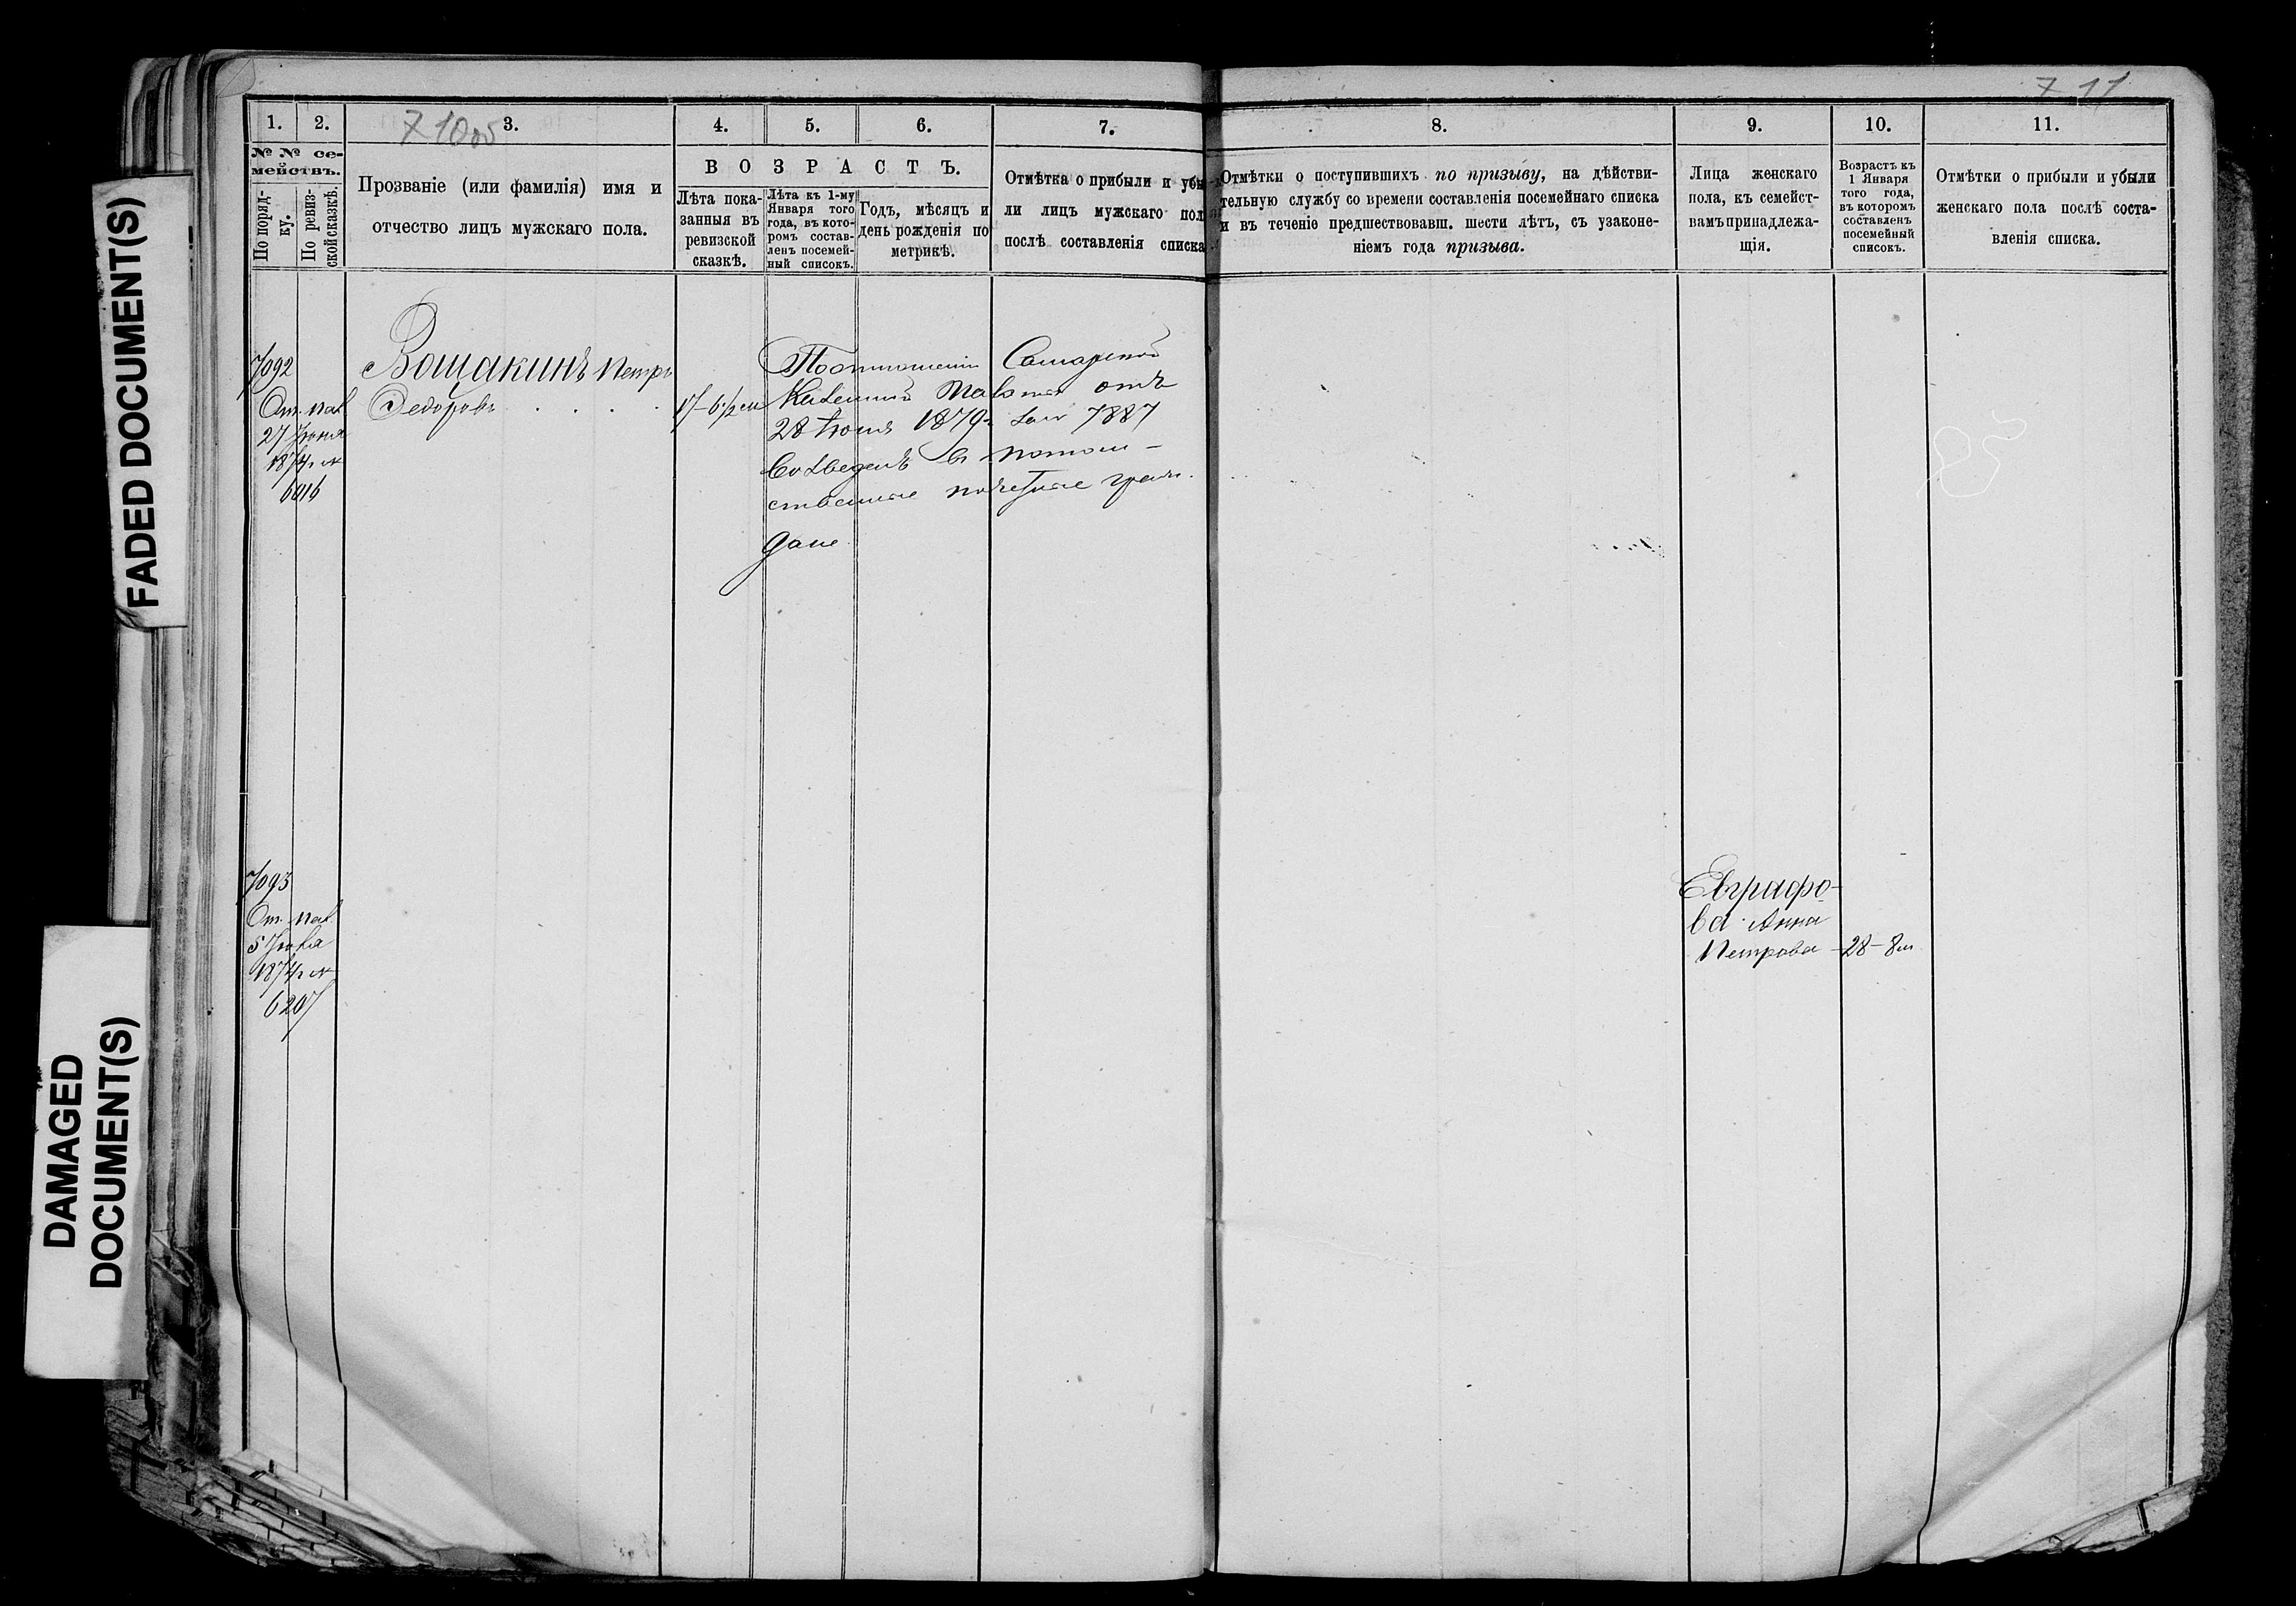 FADED DOCUMENT(S)
DAMAGED
DOCUMENT(S)
1.
№ № се-
мействъ.
По поряд-
ку.
2.
По ревиз-
ской сказкѣ.
3.
Прозваніе (или фамилія) имя и
отчество лицъ мужскаго пола.
ВОЗРАСТЪ.
4.
Лѣта пока-
занныя въ
ревизской
сказкѣ.
5.
Лѣта къ 1-му
Января того
года, въ кото-
ромъ состав-
ленъ посемей-
ный списокъ.
6.
Годъ, мѣсяцъ и
день рожденія по
метрикѣ.
7.
Отмѣтка о прибыли и убы
ли лицъ мужскаго пол
послѣ составленія списка
8.
Отмѣтки о поступившихъ по призыву, на дѣйстви-
тельную службу со времени составленія посемейнаго списка
и въ теченіе предшествовавш. шести лѣтъ, съ узаконе-
ніемъ года призыва.
9.
Лица женскаго
пола, къ семейст-
вамъ принадлежа-
щія.
10.
Возрастъ къ
1 Января
того года,
въ которомъ
составленъ
посемейный
списокъ.
11.
Отмѣтки о прибыли и убыли
женскаго пола послѣ соста-
вленія списка.
7092
От. пал
27 Іюня
1874 г №
6016
Вощакинъ Петръ
Федоровъ
17-6½ м
По отношенію Самарской
Казенной Палаты отъ
28 Іюня 1879 г за № 7887
возведенъ в потом-
ственные почетные граж.
дане
7093
От. пал
1874 г №
6207
Евграфо-
ва Анна
Петрова - 28-8 м